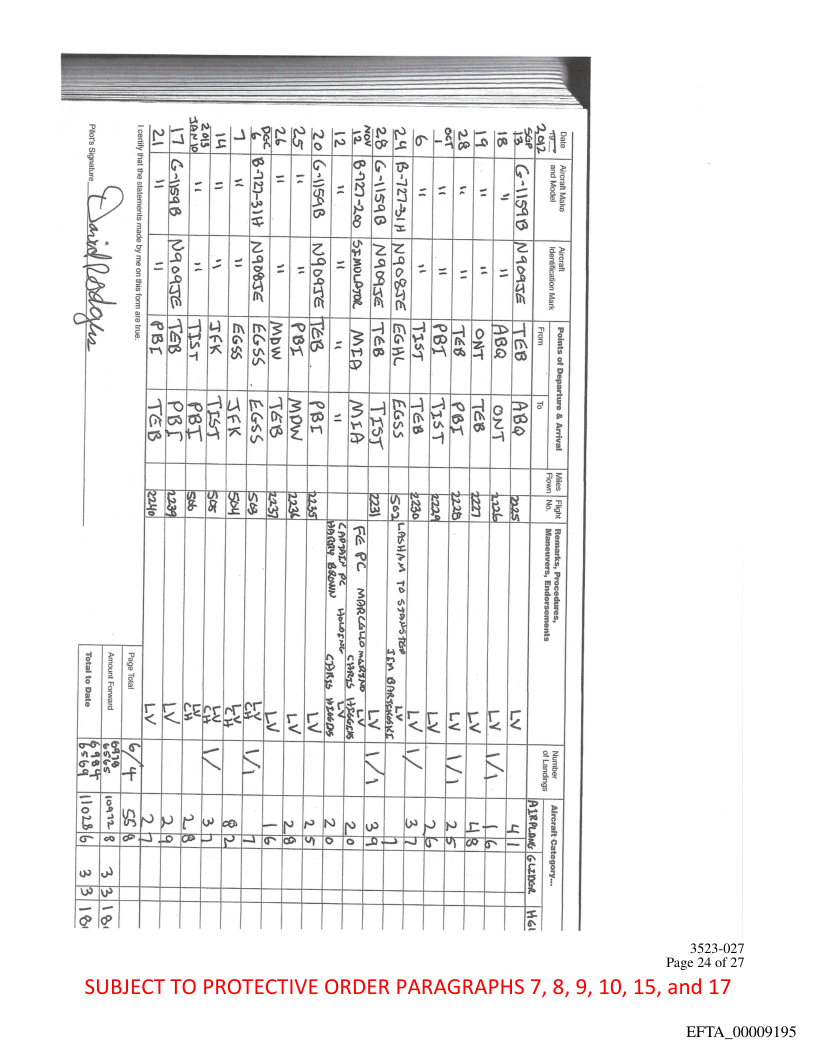 Date Aircraft Make and Model Aircraft Identification Mark Points of Departure & Arrival From To Miles Flown Flight No. Remarks, Procedures, Maneuvers, Endorsements Number of Landings Aircraft Category...
2012 AIRPLANE GLIDER HEL
SEP 13 G-1159B N909JE TEB ABQ 2225 LV 4 1
18 " " ABQ ONT 2226 LV 1/1 1 6
19 " " ONT TEB 2227 LV 4 8
28 " " TEB PBI 2228 LV 1/1 2 5
OCT 1 " " PBI TIST 2229 LV 2 6
6 " " TIST TEB 2230 LV 1/ 3 7
24 B-727-31H N908JE EGHL EGSS 502 LASHAM TO STANSTED LV JIM BARTKOSKI 7
28 G-1159B N909JE TEB TIST 2231 LV 1/1 3 9
NOV 12 B-727-200 SIMULATOR MIA MIA FE PC MARCELLO MERINO LV CHRIS HIGGENS 2 0
12 " " " " CAPTAIN PC HOLDING LV HARRY BROWN CHRIS HIGGENS 2 0
20 G-1159B N909JE TEB PBI 2235 LV 2 5
25 " " PBI MDW 2236 LV 2 8
26 " " MDW TEB 2237 LV 1 6
DEC 6 B-727-31H N908JE EGSS EGSS 503 LV CH 1/1 7
7 " " EGSS JFK 504 LV CH 8 2
14 " " JFK TIST 505 LV CH 1/ 3 7
2013 JAN 10 " " TIST PBI 506 LV CH 2 8
17 G-1159B N909JE TEB PBI 2239 LV 2 9
21 " " PBI TEB 2240 LV 2 7
I certify that the statements made by me on this form are true.
Page Total 6/4 55 8
Amount Forward 6978 6565 10972 8 3 3 18
Pilot's Signature David Rodgers
Total to Date 6984 6569 11028 6 3 3 18
3523-027
Page 24 of 27
SUBJECT TO PROTECTIVE ORDER PARAGRAPHS 7, 8, 9, 10, 15, and 17
EFTA_00009195